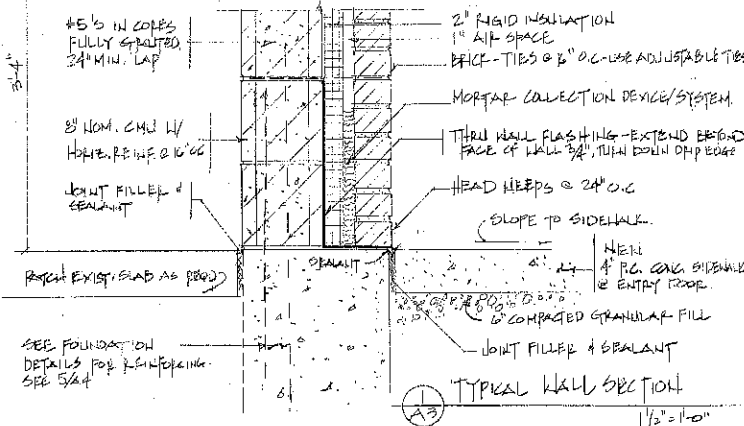 #5's IN CORES
FULLY GROUTED,
24" MIN. LAP
3'-4"
8" NOM. CMU W/
HORIZ. REINF. @ 16" OC
JOINT FILLER &
SEALANT
PATCH EXIST. SLAB AS REQD
SEE FOUNDATION
DETAILS FOR REINFORCING.
SEE 5/A4
2" RIGID INSULATION
1" AIR SPACE
BRICK-TIES @ 16" O.C-USE ADJUSTABLE TIES
MORTAR COLLECTION DEVICE/SYSTEM.
THRU WALL FLASHING-EXTEND BEYOND
FACE OF WALL 3/4", TURN DOWN DRIP EDGE
HEAD WEEPS @ 24" O.C
SLOPE TO SIDEWALK.
SEALANT
NEW
4" P.C. CONC. SIDEWALK
@ ENTRY DOOR.
6" COMPACTED GRANULAR FILL
JOINT FILLER & SEALANT
1
A3
TYPICAL WALL SECTION
1 1/2" = 1'-0"